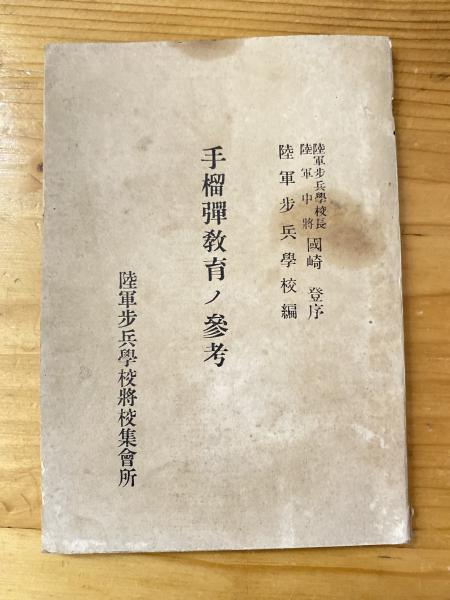 陸軍步兵學校長
陸軍中將 國崎登序
陸軍步兵學校編
手榴彈教育ノ參考
陸軍步兵學校將校集會所